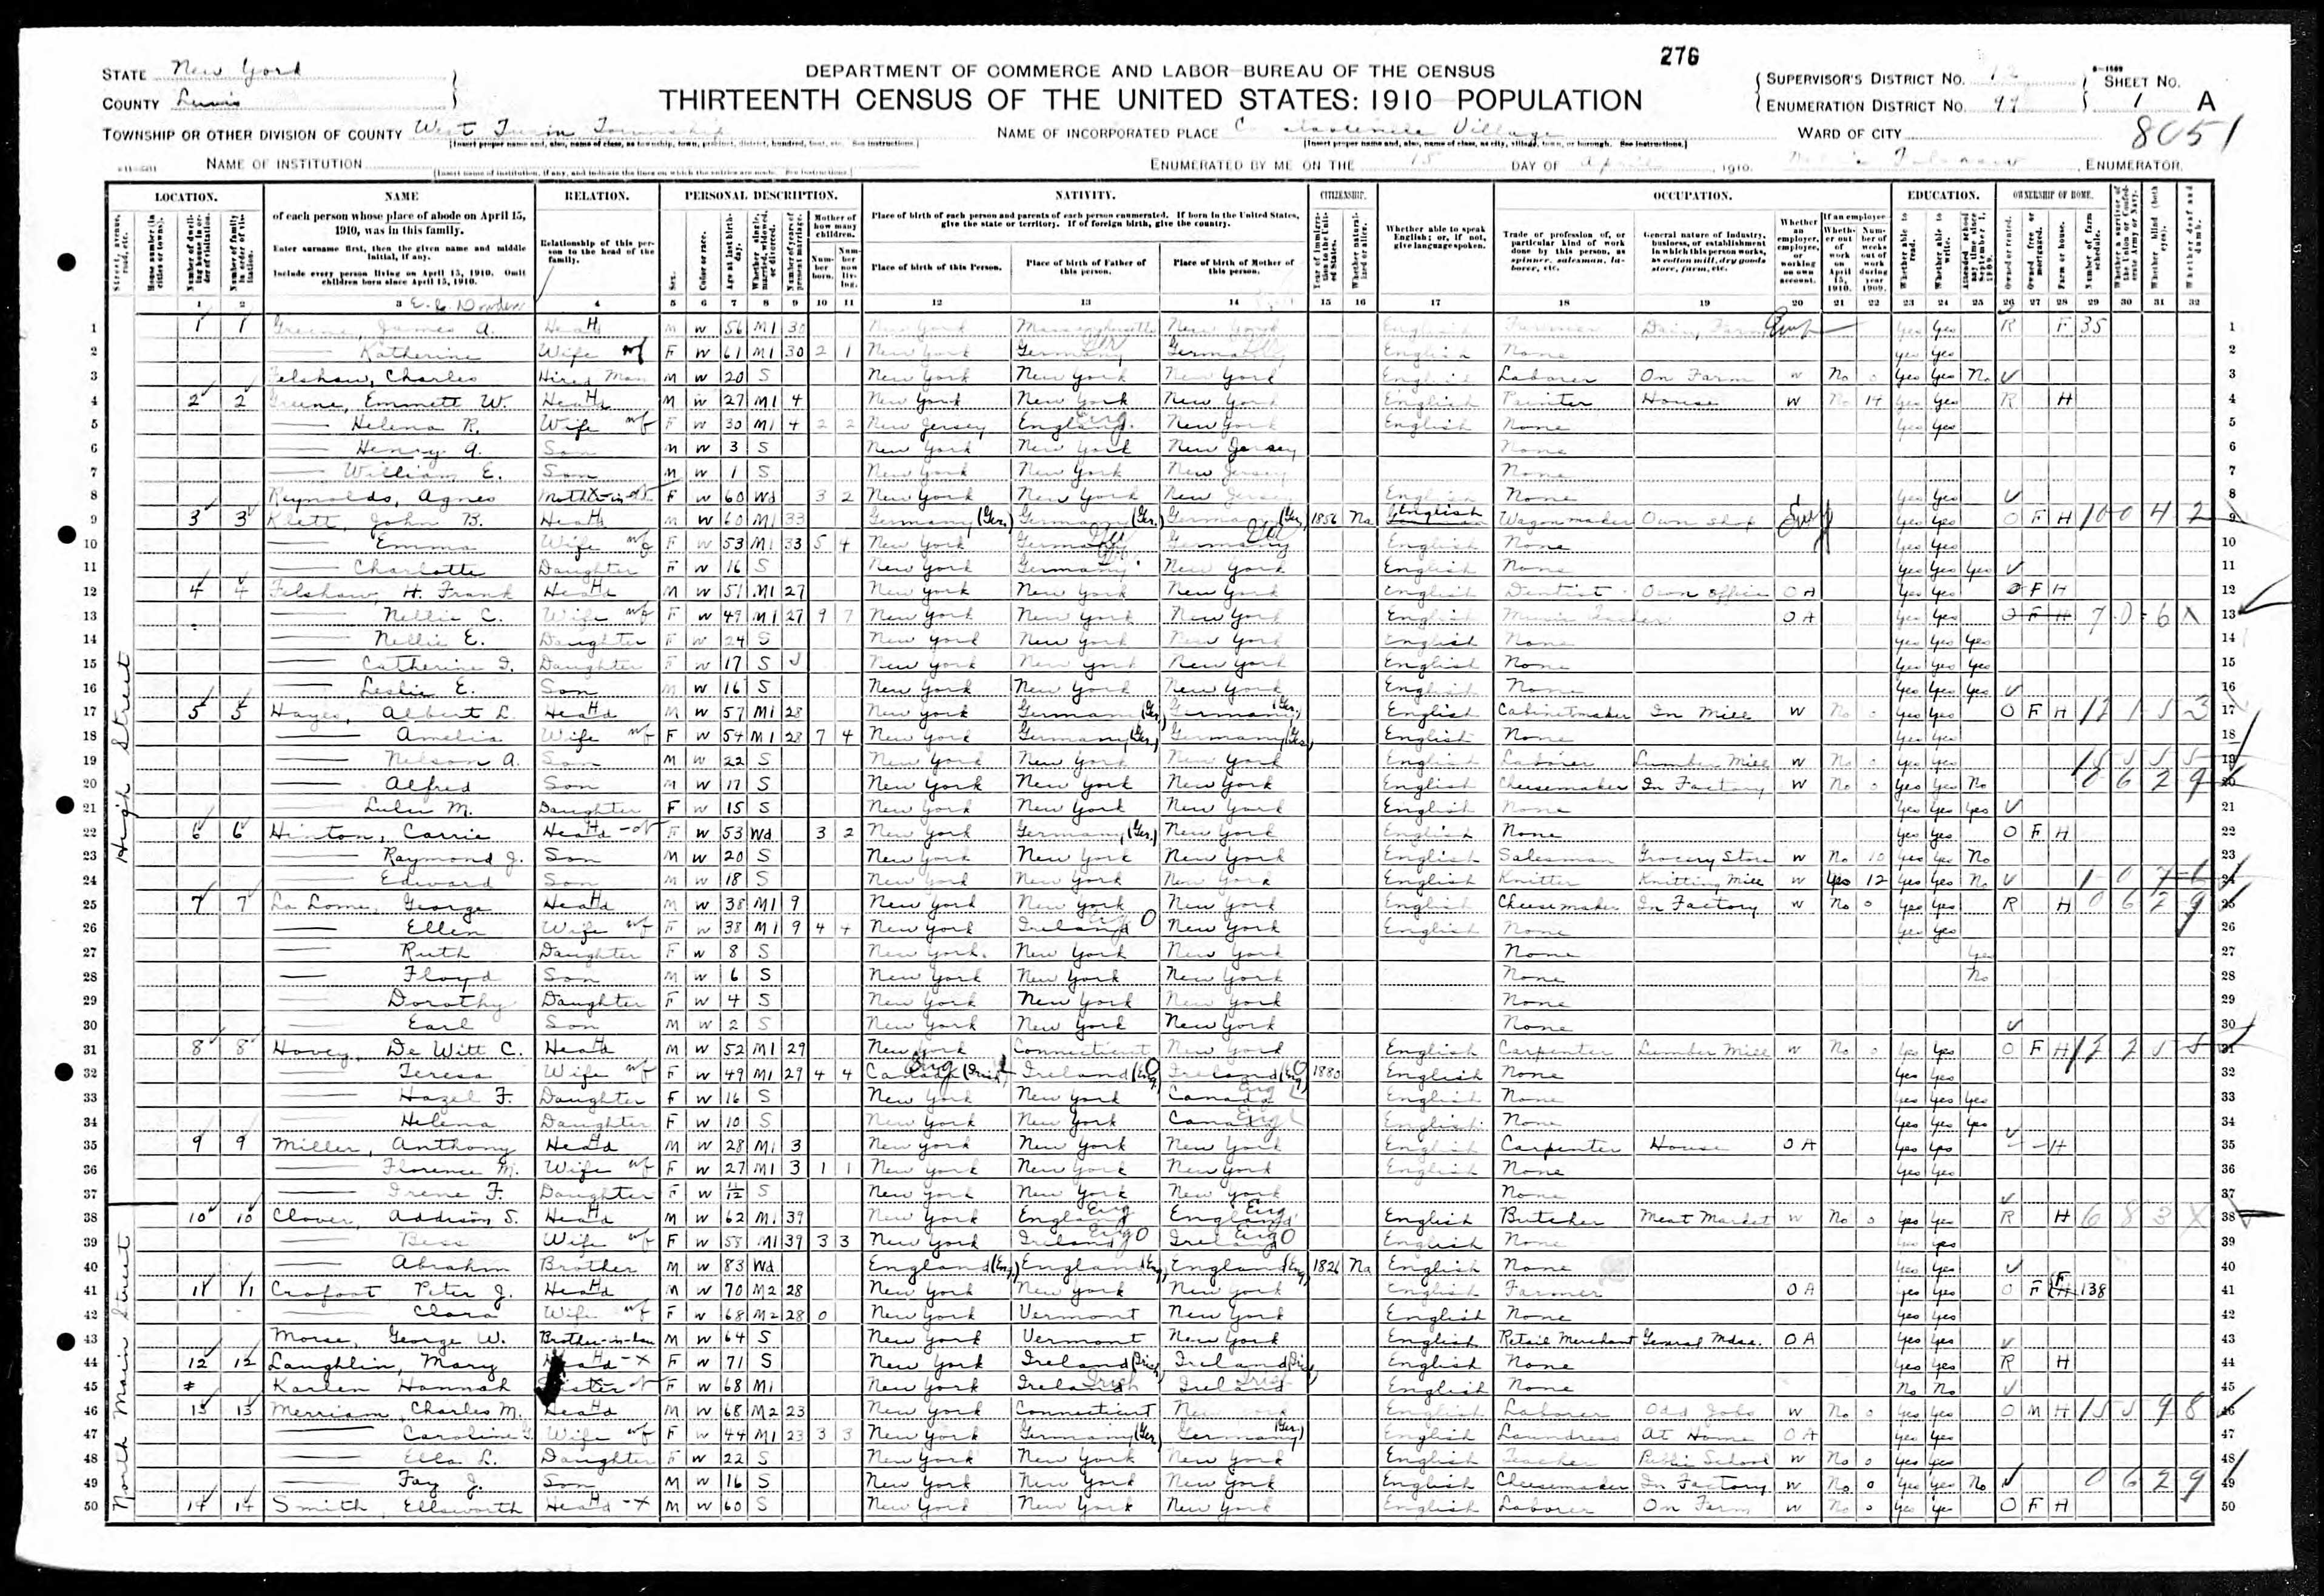 276
STATE New York
COUNTY Lewis
DEPARTMENT OF COMMERCE AND LABOR—BUREAU OF THE CENSUS
THIRTEENTH CENSUS OF THE UNITED STATES: 1910 POPULATION
SUPERVISOR'S DISTRICT No. 12
ENUMERATION DISTRICT No.
SHEET No. 1 A
8051
TOWNSHIP OR OTHER DIVISION OF COUNTY West Turin Township
NAME OF INCORPORATED PLACE Village
WARD OF CITY
NAME OF INSTITUTION
ENUMERATED BY ME ON THE 15 DAY OF April, 1910. ENUMERATOR.
LOCATION. NAME RELATION. PERSONAL DESCRIPTION. NATIVITY. CITIZENSHIP. OCCUPATION. EDUCATION. OWNERSHIP OF HOME.
of each person whose place of abode on April 15, 1910, was in this family.
Enter surname first, then the given name and middle initial, if any.
Include every person living on April 15, 1910. Omit children born since April 15, 1910.
Relationship of this person to the head of the family.
Place of birth of each person and parents of each person enumerated. If born in the United States, give the state or territory. If of foreign birth, give the country.
Place of birth of this Person. Place of birth of Father of this person. Place of birth of Mother of this person.
Whether able to speak English; or, if not, give language spoken.
High Street
1 1 1 Greene, James A. Head M W 56 M1 30 New York Massachusetts New York English Farmer Dairy Farm Emp Yes Yes R F 35
2 Katherine Wife F W 61 M1 30 2 1 New York Germany Germany English None Yes Yes
3 Felshaw, Charles Hired Man M W 20 S New York New York New York English Laborer On Farm W No 0 Yes Yes No
4 2 2 Greene, Emmett W. Head M W 27 M1 4 New York New York New York English Painter House W No 14 Yes Yes R H
5 Helena R. Wife F W 30 M1 4 2 2 New Jersey England New York English None Yes Yes
6 Henry A. Son M W 3 S New York New York New Jersey None
7 William E. Son M W 1 S New York New York New Jersey None
8 Reynolds, Agnes Mother-in-law F W 60 Wd 3 2 New York New York New Jersey English None Yes Yes
9 3 3 Klett, John B. Head M W 60 M1 33 Germany (Ger.) Germany (Ger.) Germany (Ger.) 1856 Na English Wagonmaker Own shop Emp Yes Yes O F H 10 0 4 2
10 Emma Wife F W 53 M1 33 5 4 New York Germany Germany English None Yes Yes
11 Charlotte Daughter F W 16 S New York Germany New York English None Yes Yes Yes
12 4 4 Felshaw, H. Frank Head M W 51 M1 27 New York New York New York English Dentist Own office O A Yes Yes O F H
13 Nellie C. Wife F W 49 M1 27 9 7 New York New York New York English Music Teacher O A Yes Yes O F H
14 Nellie E. Daughter F W 24 S New York New York New York English None Yes Yes Yes
15 Catherine I. Daughter F W 17 S New York New York New York English None Yes Yes Yes
16 Leslie E. Son M W 16 S New York New York New York English None Yes Yes Yes
17 5 5 Hayes, Albert L. Head M W 57 M1 28 New York Germany (Ger.) Germany (Ger.) English Cabinetmaker In Mill W No 0 Yes Yes O F H
18 Amelia Wife F W 54 M1 28 7 4 New York Germany (Ger.) Germany (Ger.) English None Yes Yes
19 Nelson A. Son M W 22 S New York New York New York English Laborer Lumber Mill W No 0 Yes Yes
20 Alfred Son M W 17 S New York New York New York English Cheesemaker In Factory W No 0 Yes Yes No 0 6 2 9
21 Lulu M. Daughter F W 15 S New York New York New York English None Yes Yes Yes
22 6 6 Hinton, Carrie Head F W 53 Wd 3 2 New York Germany (Ger.) New York English None Yes Yes O F H
23 Raymond J. Son M W 20 S New York New York New York English Salesman Grocery Store W No 10 Yes Yes No
24 Edward Son M W 18 S New York New York New York English Knitter Knitting Mill W Yes 12 Yes Yes No
25 7 7 La Lome, George Head M W 38 M1 9 New York New York New York English Cheesemaker In Factory W No 0 Yes Yes R H 0 6 2 9
26 Ellen Wife F W 38 M1 9 4 4 New York Ireland New York English None Yes Yes
27 Ruth Daughter F W 8 S New York New York New York None Yes
28 Floyd Son M W 6 S New York New York New York None No
29 Dorothy Daughter F W 4 S New York New York New York None
30 Earl Son M W 2 S New York New York New York None
31 8 8 Hovey, De Witt C. Head M W 52 M1 29 New York Connecticut New York English Carpenter Lumber Mill W No 0 Yes Yes O F H
32 Teresa Wife F W 49 M1 29 4 4 Canada Ireland (Eng) Ireland (Eng) 1880 English None Yes Yes
33 Hazel F. Daughter F W 16 S New York New York Canada English None Yes Yes Yes
34 Helena Daughter F W 10 S New York New York Canada English None Yes Yes Yes
35 9 9 Miller, Anthony Head M W 28 M1 3 New York New York New York English Carpenter House O A Yes Yes H
36 Florence M. Wife F W 27 M1 3 1 1 New York New York New York English None Yes Yes
37 Irene F. Daughter F W 11/12 S New York New York New York None
North Main Street
38 10 10 Clover, Addison S. Head M W 62 M1 39 New York England England English Butcher Meat Market W No 0 Yes Yes R H 6 8 3 X
39 Bess Wife F W 58 M1 39 3 3 New York Ireland Ireland English None Yes
40 Abrahim Brother M W 83 Wd England (Eng) England (Eng) England (Eng) 1826 Na English None Yes Yes
41 11 11 Crofoot Peter J. Head M W 70 M2 28 New York New York New York English Farmer O A Yes Yes O F F 138
42 Clara Wife F W 68 M2 28 0 New York Vermont New York English None Yes Yes
43 Morse, George W. Brother-in-law M W 64 S New York Vermont New York English Retail Merchant General Mdse. O A Yes Yes
44 12 12 Laughlin, Mary Head F W 71 S New York Ireland Ireland English None Yes Yes R H
45 Karlen Hannah Sister F W 68 M1 New York Ireland Ireland English None No No
46 13 13 Merriam, Charles M. Head M W 68 M2 23 New York Connecticut New York English Laborer Odd Jobs W No 0 Yes Yes O M H
47 Caroline G. Wife F W 44 M1 23 3 3 New York Germany (Ger) Germany (Ger) English Laundress At Home O A Yes Yes
48 Ella L. Daughter F W 22 S New York New York New York English Teacher Public School W No 0 Yes Yes
49 Fay J. Son M W 16 S New York New York New York English Cheesemaker In Factory W No 0 Yes Yes No 0 6 2 9
50 14 14 Smith Ellsworth Head M W 60 S New York New York New York English Laborer On Farm W No 0 Yes Yes O F H